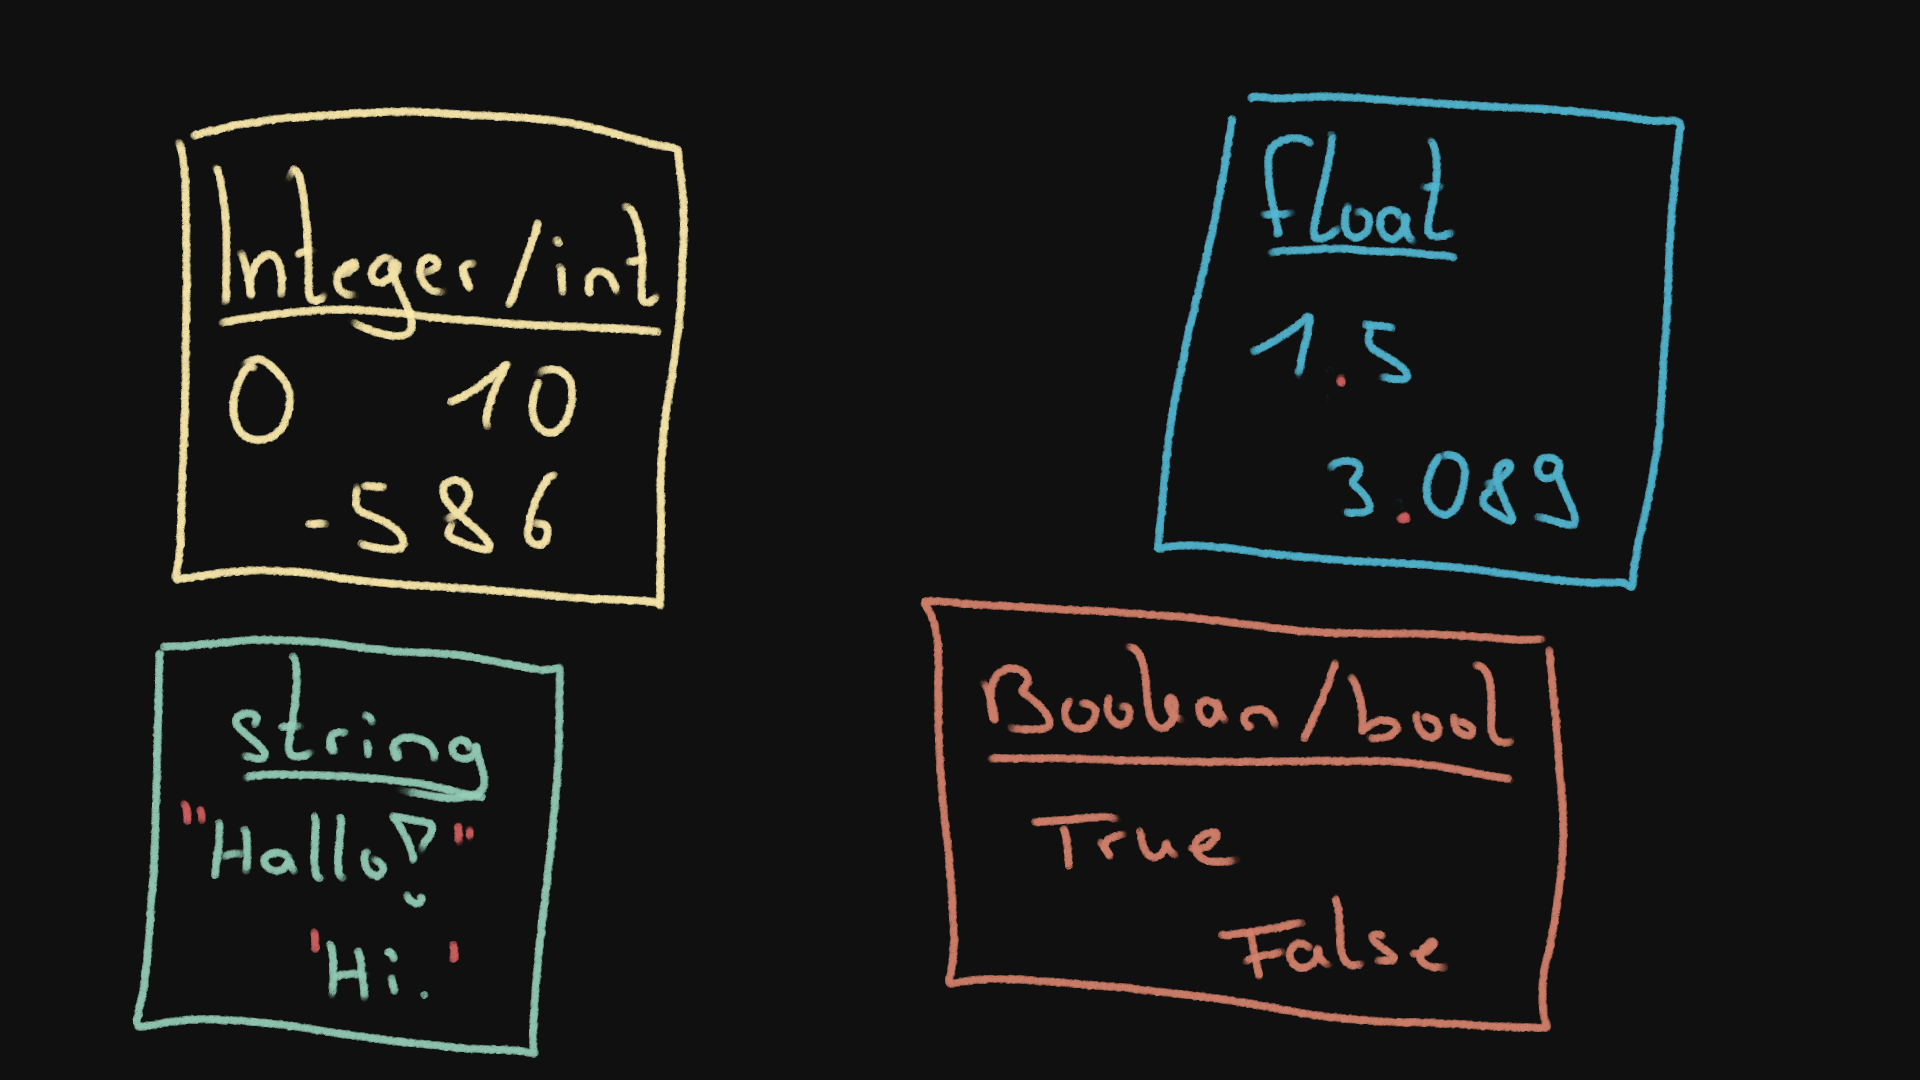 Integer/int
0 10
-586
float
1.5
3.089
string
"Hallo!"
'Hi.'
Boolean/bool
True
False